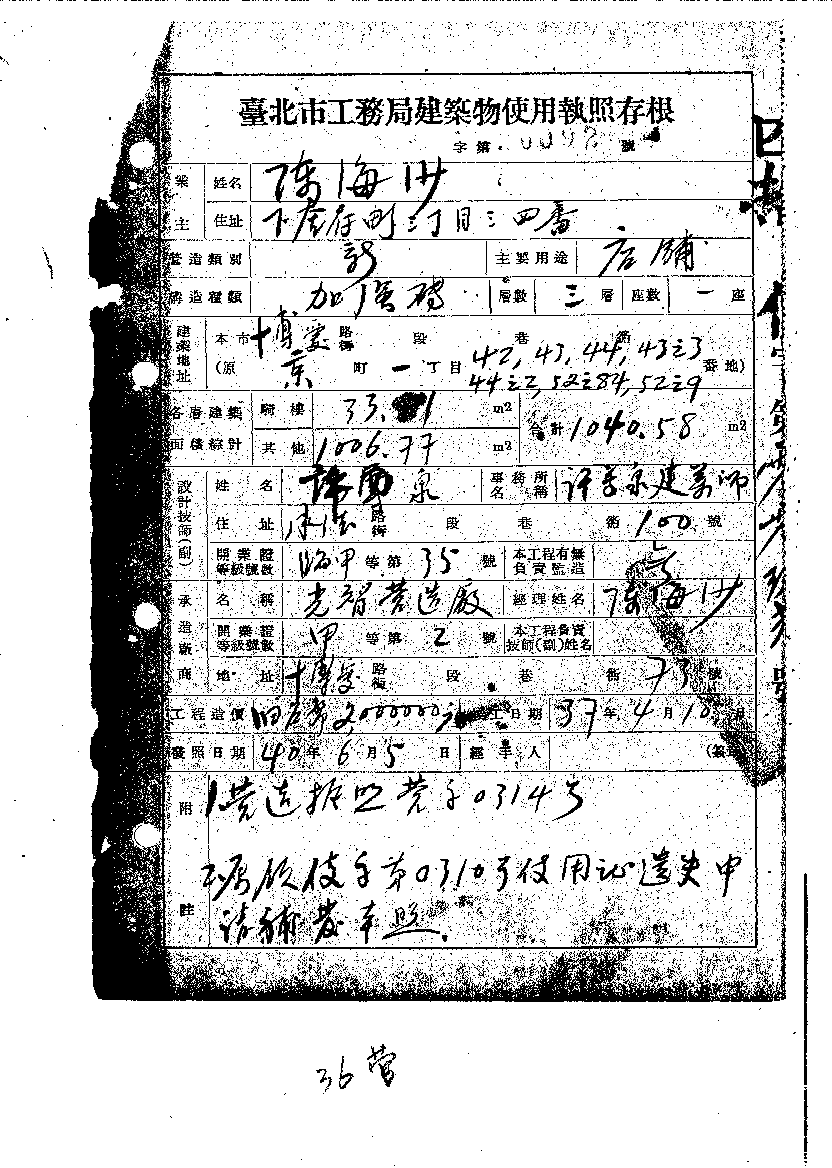 臺北市工務局建築物使用執照存根
字第 號
業主 姓名 陳海沙
住址 下奎府町三丁目三四番
營造類別 新 主要用途 店舖
構造種類 加強磚 層數 三層 座數 一座
建築地址 本市博愛路街 段 巷 號
(原 京町一丁目 42,43,44,43之3 番地)
44之2,52之84,52之9
各層建築面積綜計 騎樓 33. 1 m2 合計 1040.58 m2
其他 1006.77 m2
設計技師(副) 姓名 泉 事務所名稱 建築師
住址 路街 段 巷 號 100 號
開業證等級號數 臨甲等第35號 本工程有無負責監造
承造廠商 名稱 光智營造廠 經理姓名 陳海沙
開業證等級號數 甲等第2號 本工程負責技師(副)姓名
地址 博愛路街 段 巷 號 73 號
工程造價 2,000000元 工日期 37年4月10日
發照日期 40年6月5日 經手人
附註 1.營造執照營字0314號
2.原領使字第0310號使用证遺失申
請補發本照.
36營